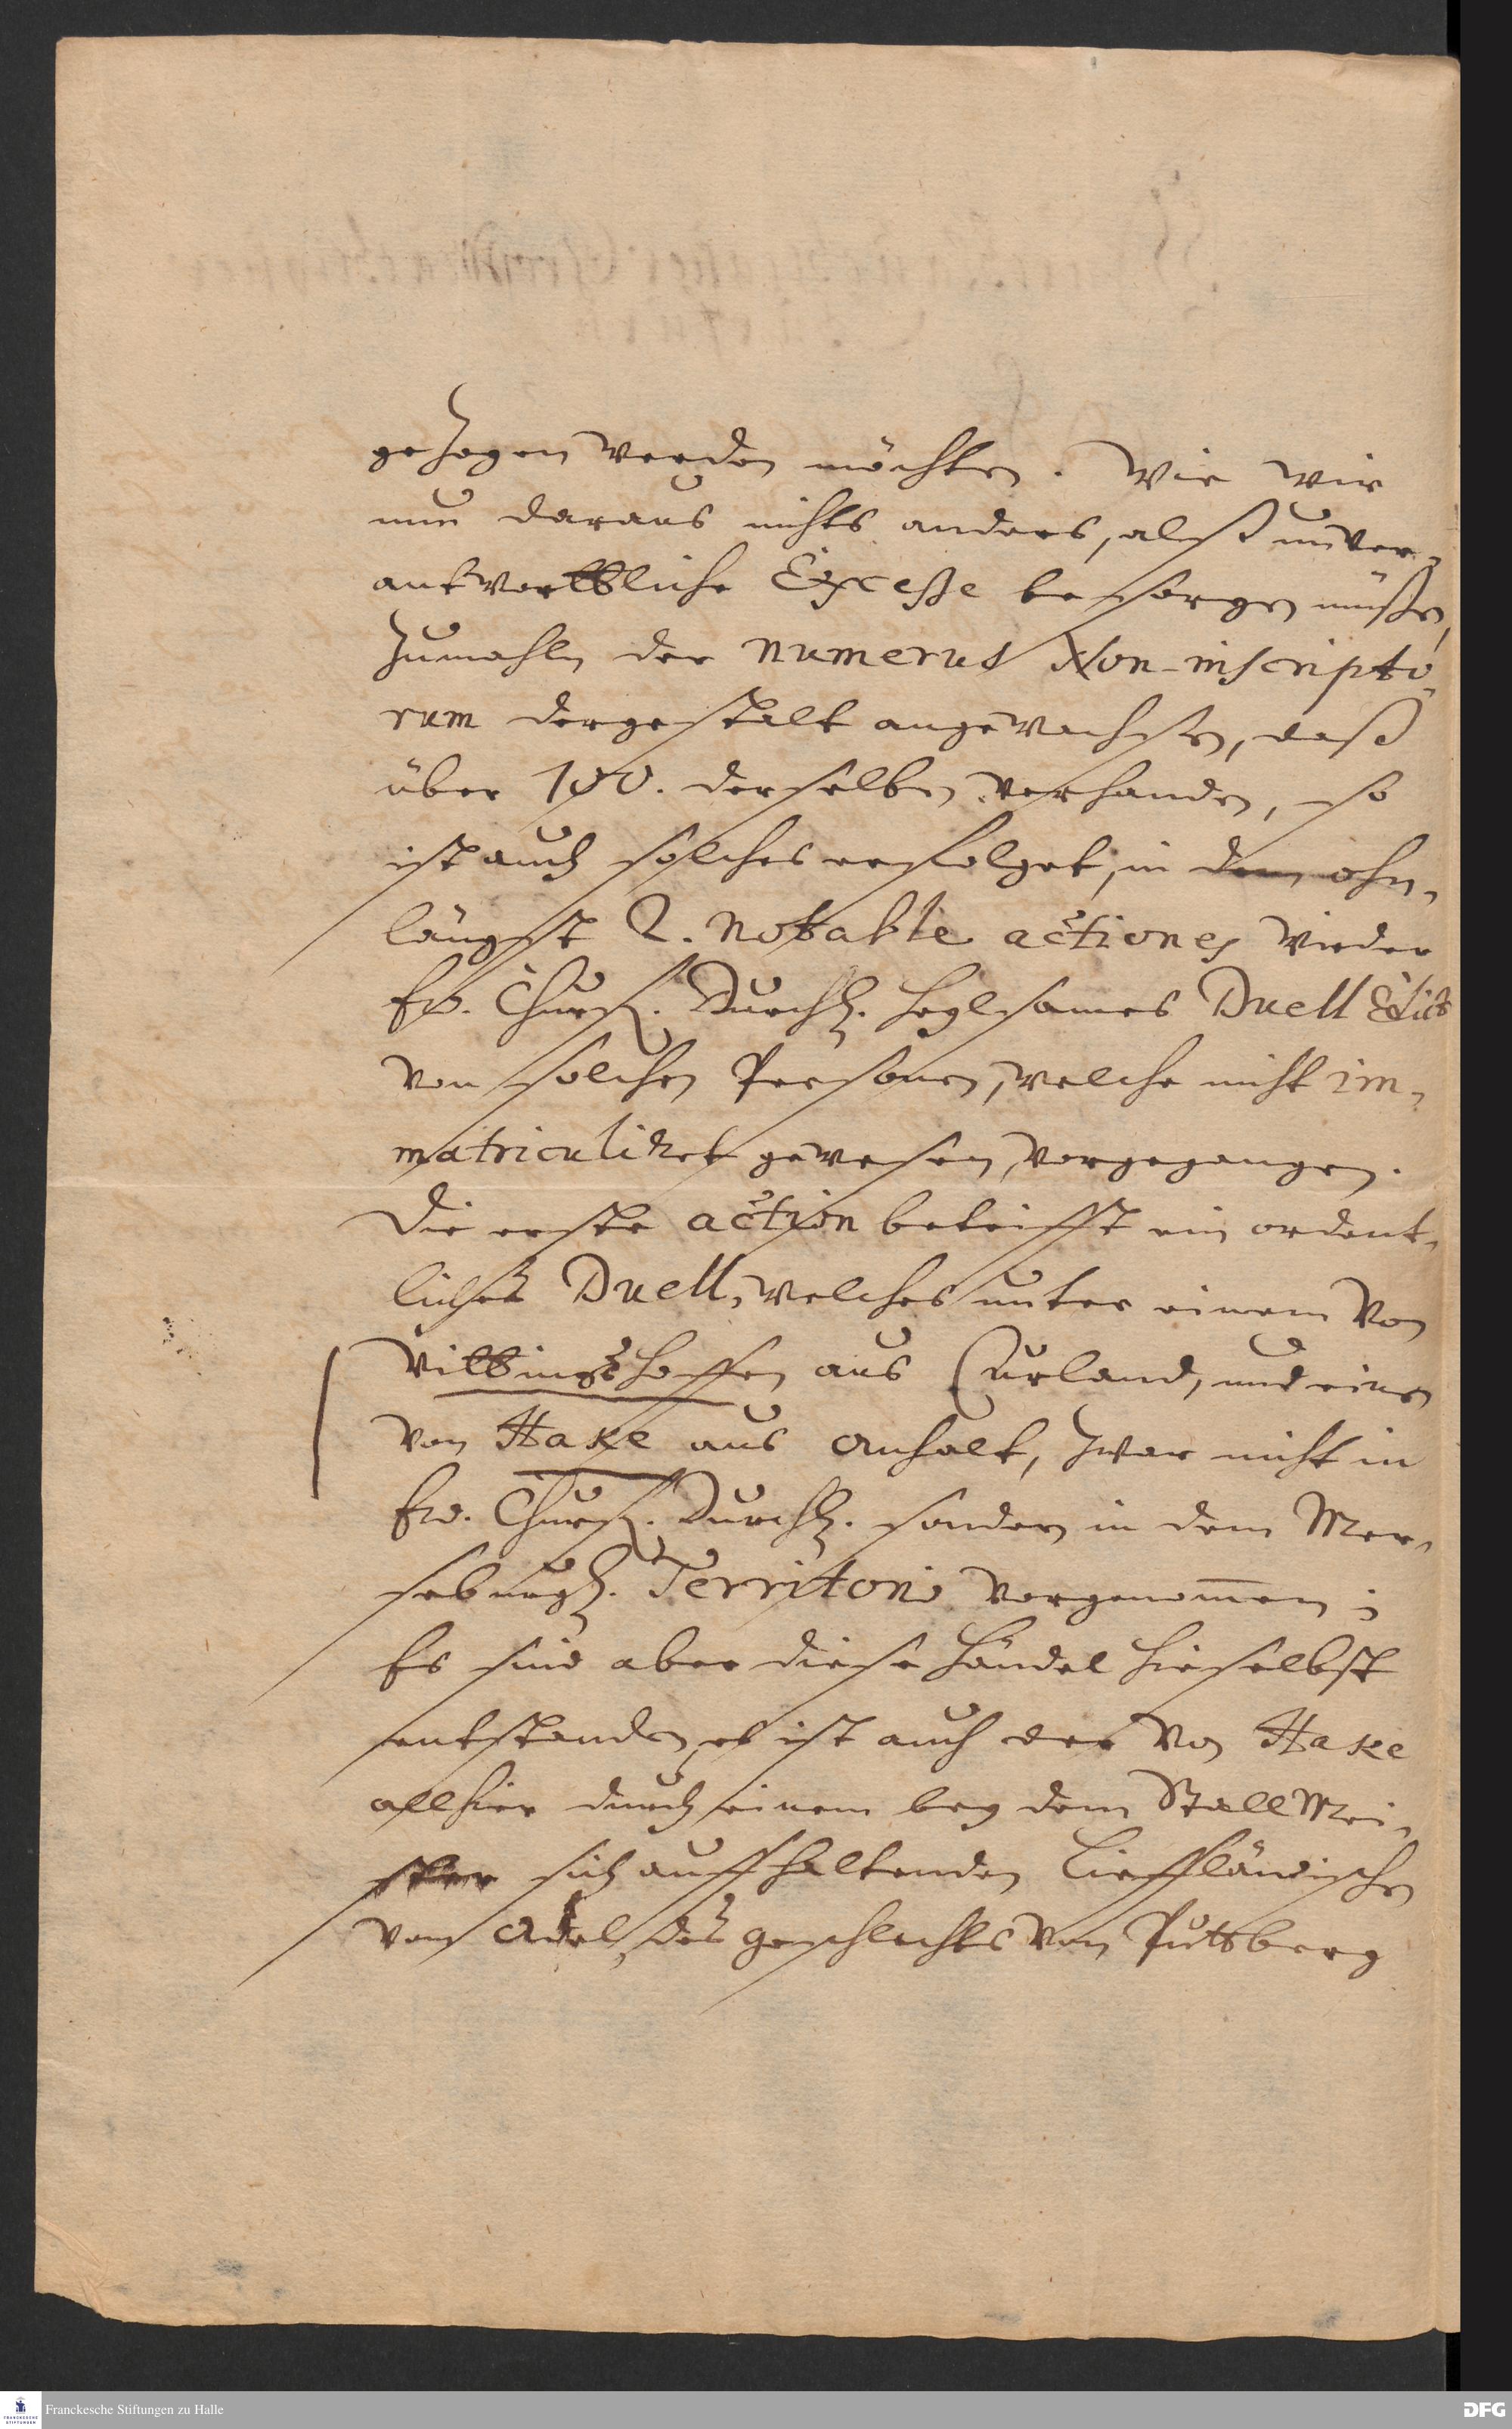 gezogen werden möchten. Wie wir
nun daraus nichts anders, alß unver-
antworttliche Excesse besorgen müßen,
zumahln der numerus Non-inscripto-
rum dergestalt angewachsen, daß
über 100. derselben verhanden, so
ist auch solches erfolget, in dem ohn-
längst 2. notable actiones wieder
Ew. Churf. Durchl. heylsames Duell Edict
von solchen Personen, welche nicht im-
matriculiret gewesen, vorgegangen.
Die erste action betrifft ein ordent-
liches Duell, welches unter einem von
Vittingshoffen aus Curland, und einen
von Hake aus Anhalt, zwar nicht in
Ew. Churf. Durchl. sondern in dem Mer-
seburgl. Territorio vorgenom̄en;
Es sind aber diese Händel hieselbst
entstanden, es ist auch der von Hake
allhier durch einem bey dem Stall Mei-
ster sich auffhaltenden Liefländischen
vom Adel, des geschlechts von Puttberg
Franckesche Stiftungen zu Halle
DFG